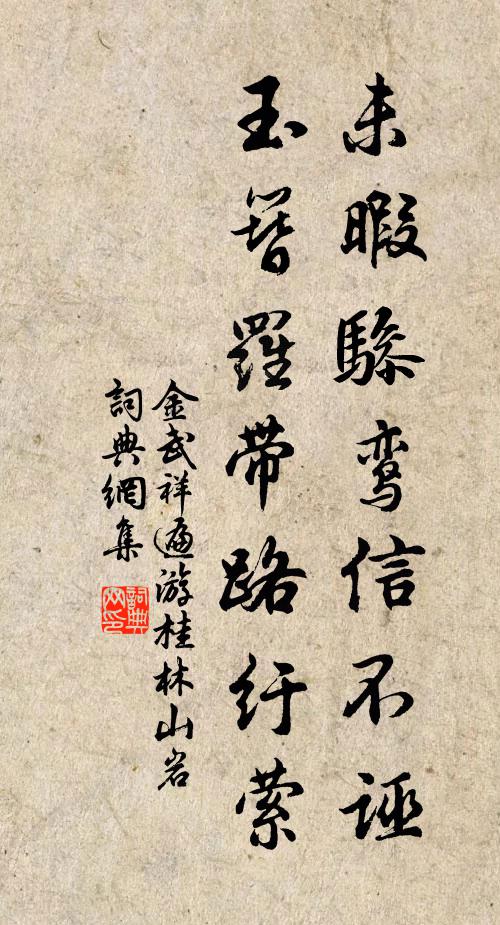 未暇驂鸾信不誣
玉簪羅帶路紆縈
金武祥遍游桂林山岩
詞典網集
詞典网印